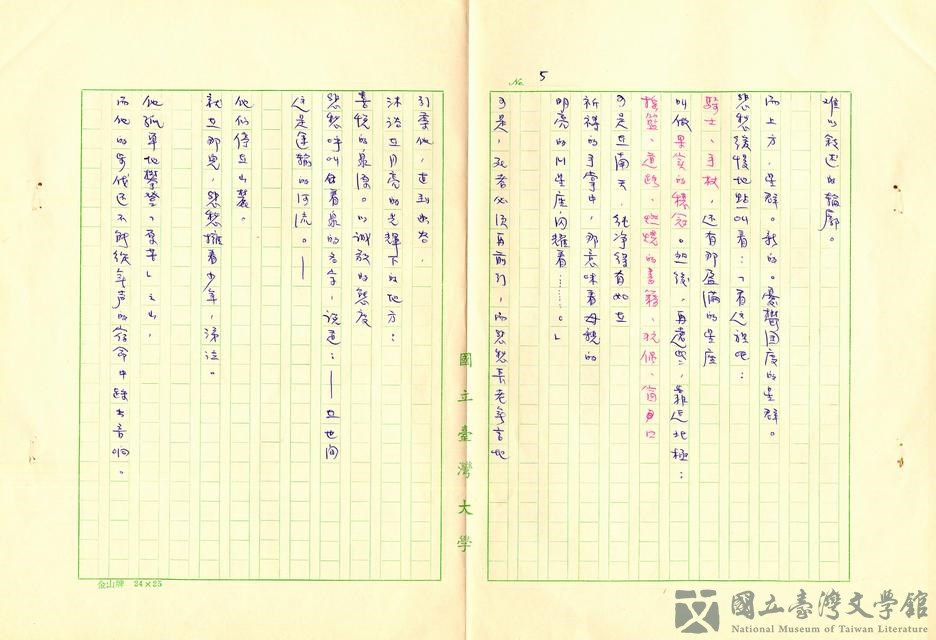 No. 5
難以敘述的輪廓。
而上方，星群。新的。憂鬱國度的星群。
悲愁緩慢地點叫着：「看這裡吧：
騎士、手杖，还有那盈滿的星座
叫做果实的様冠。然後，再遠些，靠近北極：
搖籃、道路、燃燒的書籍、玩偶、窗口
可是在南天，純净得有如在
祈祷的手掌中，那意味着母親的
明亮的M星座闪耀着……。」
可是，死者必須再前行，而悲愁長老無言地
引帶他，直到峽谷，
沐浴在月亮的光輝下的地方：
喜悦的泉源。以誠敬的態度
悲愁呼叫做着泉的名字，说道：——在世间
这是運輸的河流。——
他们停在山麓。
就在那兒，悲愁擁着少年，涕泣。
他孤單地攀登「原苦」之山，
而他的步伐还不能從無声的宿命中踩出音响。
國立臺灣大學
金山牌 24×25
國立臺灣文學館
National Museum of Taiwan Literature